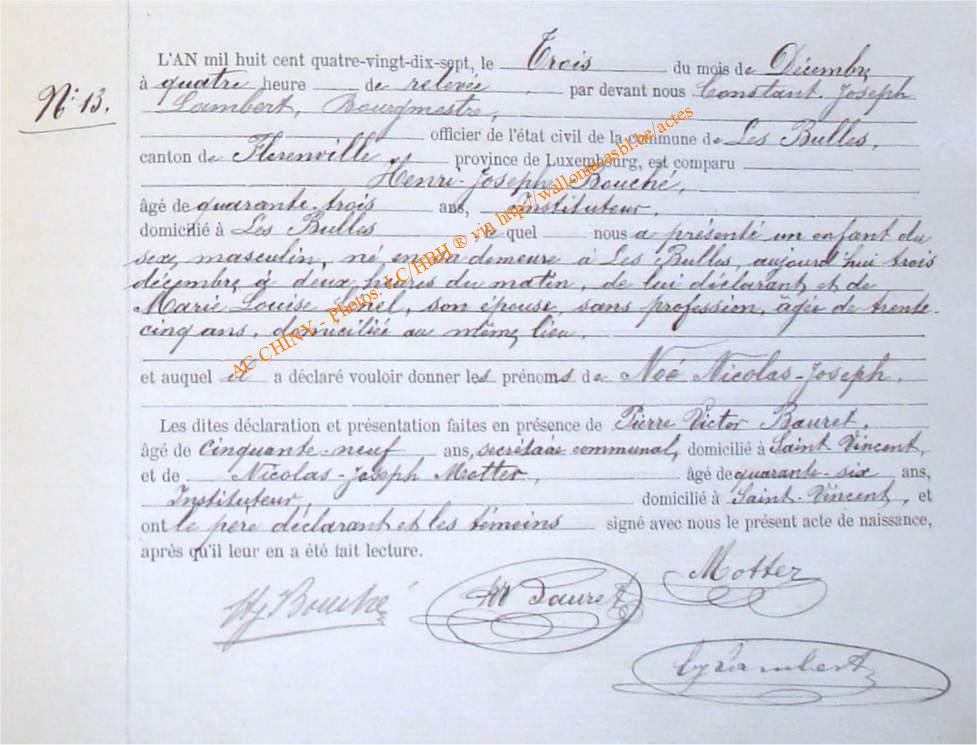 L'AN mil huit cent quatre-vingt-dix-sept, le Trois du mois de Décembre
N: 13.
à quatre heure de relevée par devant nous Constant Joseph
Lambert, Bourgmestre,
officier de l'état civil de la commune de Les Bulles,
canton de Florenville province de Luxembourg, est comparu
Henri-Joseph Bouché,
âgé de quarante-trois ans, Instituteur.
domicilié à Les Bulles le quel nous a présenté un enfant du
sexe masculin, né en sa demeure à Les Bulles, aujourd'hui trois
décembre à deux heures du matin, de lui déclarant et de
Marie Louise son épouse, sans profession, âgée de trente-
cinq ans, domiciliée au même lieu.
et auquel il a déclaré vouloir donner les prénoms de Noé Nicolas-Joseph.
Les dites déclaration et présentation faites en présence de Pierre Victor Bauret,
âgé de cinquante-neuf ans, secrétaire communal, domicilié à Saint Vincent,
et de Nicolas-Joseph Motter, âgé de quarante-six ans,
Instituteur, domicilié à Saint-Vincent, et
ont le père déclarant et les témoins signé avec nous le présent acte de naissance,
après qu'il leur en a été fait lecture.
Motter
HJ Bouché
Bauret
CJ Lambert
AC CHINY - Photos: LC/HBH ® via http://wallonia-asbl.be/actes